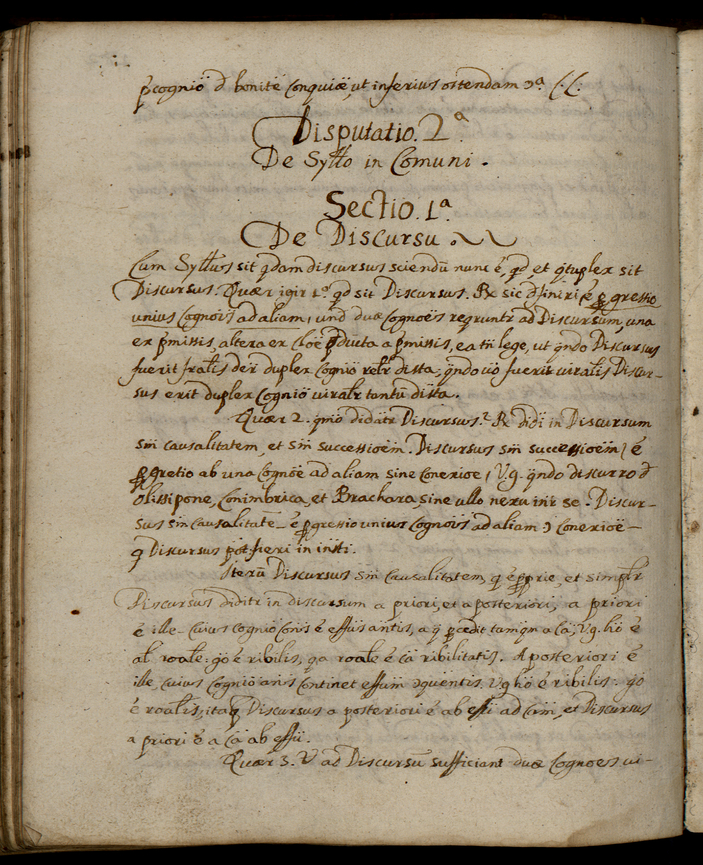 pcognio d bonite Conquiæ, ut inferius ostendam
Disputatio. 2ª.
De Syllo in Comuni.
Sectio. 1ª.
De Discursu.
Cum Syllus sit qdam discursus sciendũ nunc ẽ, qd et qtuplex sit
Discursus. Quær igir 1º. qd sit Discursus. Rx sic dfiniri ẽ pgressio
unius Cognois ad aliam, und duæ Cognoes reqruntr ad Discursum, una
ex pmissis, altera ex Cloe pducta a pmissis, ea tñ lege, ut qndo Discursus
fuerit fralis der duplex Cognio relr dista, qndo vo fuerit viralis Discur-
sus erit duplex Cognio viralr tantũ dista.
Quær 2. qmo dididtr Discursus? Rx didi in Discursum
sm causalitatem, et sm successioem. Discursus sm successioem ẽ
pgretio ab una Cognoe ad aliam sine Conexioe, V.g. qndo discurro d
olissipone, Conimbrica, et Brachara, sine ullo nexu intr se. Discur-
sus sm causalitatẽ ẽ pgressio unius Cognois ad aliam Conexioẽ
q Discursus pot fieri in insti.
Iterũ Discursus sm Causalitatem, q ẽ pprie, et simplr
Discursus diditr in discursum a priori, et a posteriori, a priori
ẽ ille cuius cognio Conis ẽ effus antis, a q pcedit tamqm a Cã, V.g. hõ ẽ
al roale: gõ ẽ ribilis, qa roale ẽ cã ribilitatis. A posteriori ẽ
ille, cuius Cognio anis Continet effum quentis. V.g. hõ ẽ ribilis: gõ
ẽ roalis, itaq Discursus a posteriori ẽ ab effu ad Cam, et Discursus
a priori ẽ a Cã ab effu.
Quær 3. ad Discursũ sufficiant duæ Cognoes vi-